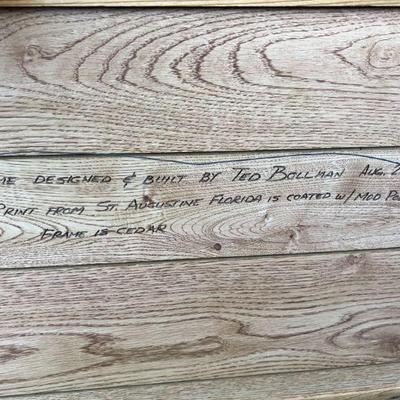 ME DESIGNED & BUILT BY TED BOLLMAN AUG. 2
PRINT FROM ST. AUGUSTINE FLORIDA IS COATED W/ MOD PO
FRAME IS CEDAR